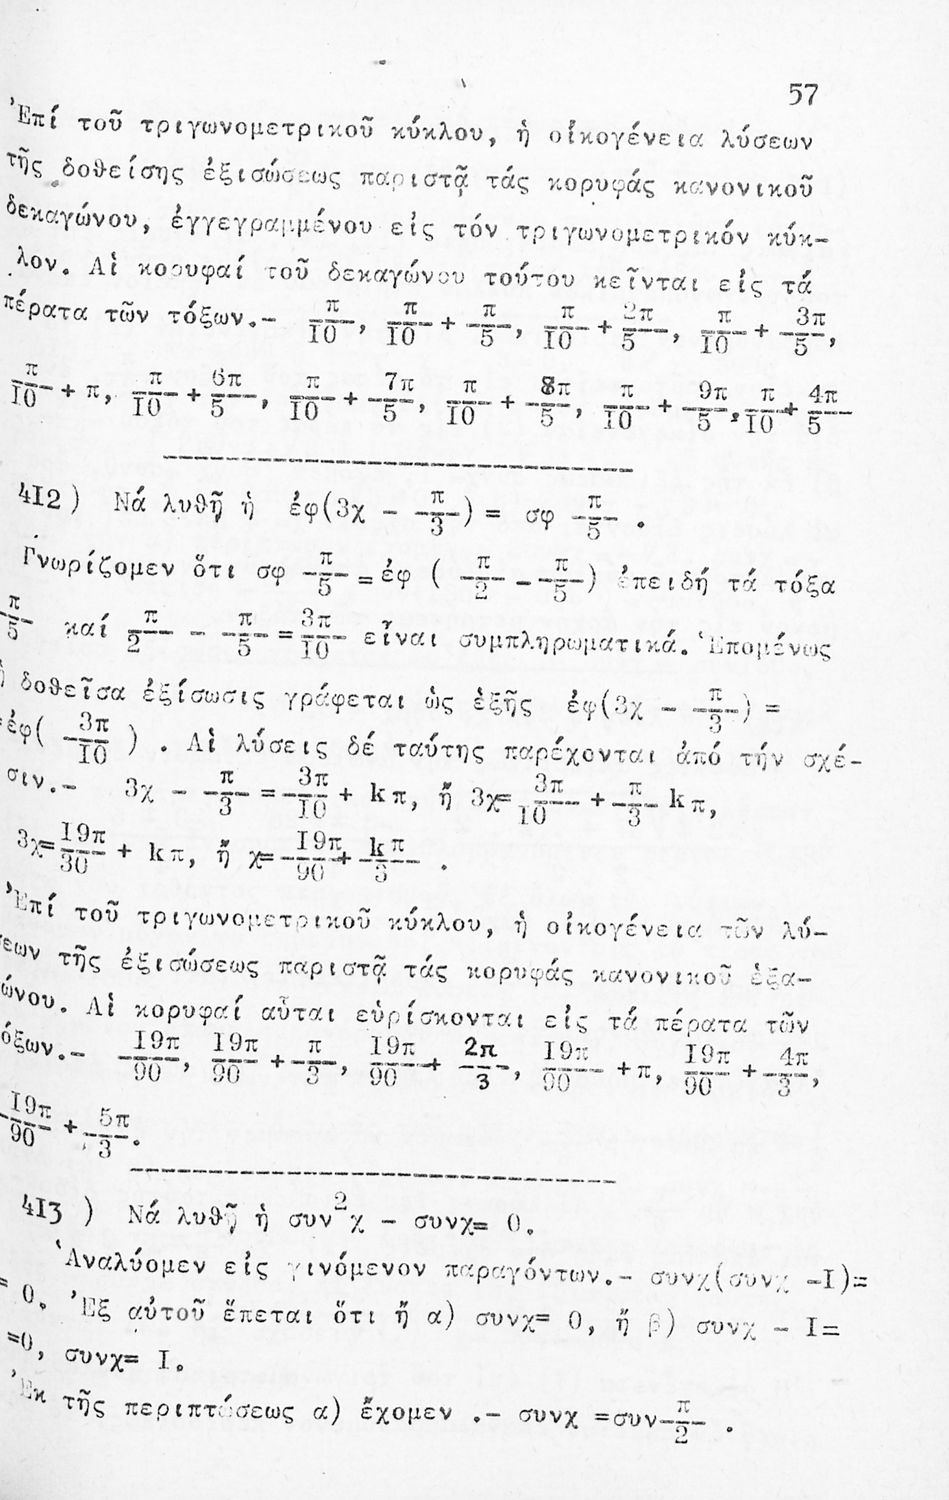 57
Ἐπί τοῦ τριγωνομετρικοῦ κύκλου, ἡ οἰκογένεια λύσεων
τῆς δοθείσης ἐξισώσεως παριστᾷ τάς κορυφάς κανονικοῦ
δεκαγώνου, ἐγγεγραμμένου εἰς τόν τριγωνομετρικόν κύκ-
λον. Αἱ κορυφαί τοῦ δεκαγώνου τούτου κεῖνται εἰς τά
πέρατα τῶν τόξων.- π/I0, π/I0 + π/5, π/I0 + 2π/5, π/I0 + 3π/5,
π/I0 + π, π/I0 + 6π/5, π/I0 + 7π/5, π/I0 + 8π/5, π/I0 + 9π/5, π/I0 + 4π/5
4I2) Νά λυθῇ ἡ ἐφ(3χ - π/3) = σφ π/5 .
Γνωρίζομεν ὅτι σφ π/5 = ἐφ ( π/2 - π/5 ) ἐπειδή τά τόξα
π/5 καί π/2 - π/5 = 3π/I0 εἶναι συμπληρωματικά. Ἑπομένως
ἡ δοθεῖσα ἐξίσωσις γράφεται ὡς ἑξῆς ἐφ(3χ - π/3) =
=ἐφ( 3π/I0 ) . Αἱ λύσεις δέ ταύτης παρέχονται ἀπό τήν σχέ-
σιν.- 3χ - π/3 = 3π/I0 + kπ, ἤ 3χ= 3π/I0 + π/3 kπ,
3χ= I9π/30 + kπ, ἤ χ= I9π/90 + kπ/3 .
Ἐπί τοῦ τριγωνομετρικοῦ κύκλου, ἡ οἰκογένεια τῶν λύ-
σεων τῆς ἐξισώσεως παριστᾷ τάς κορυφάς κανονικοῦ ἑξα-
ώνου. Αἱ κορυφαί αὗται εὑρίσκονται εἰς τά πέρατα τῶν
όξων.- I9π/90, I9π/90 + π/3, I9π/90 + 2π/3, I9π/90 + π, I9π/90 + 4π/3,
I9π/90 + 5π/3.
4I3 ) Νά λυθῇ ἡ συν²χ - συνχ= 0.
Ἀναλύομεν εἰς γινόμενον παραγόντων.- συνχ(συνχ -I)=
= 0. Ἐξ αὐτοῦ ἕπεται ὅτι ἤ α) συνχ= 0, ἤ β) συνχ - I=
=0, συνχ= I.
Ἐκ τῆς περιπτώσεως α) ἔχομεν .- συνχ =συν π/2 .